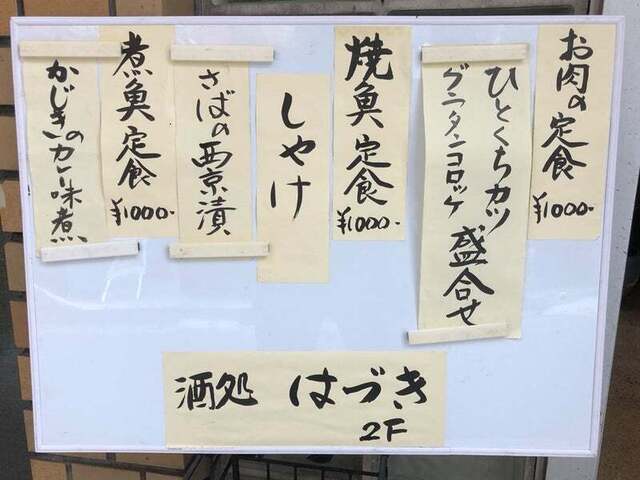 お肉の定食
¥1000-
ひとくちカツ
グラタンコロッケ
盛合せ
焼魚定食
¥1000-
しゃけ
さばの西京漬
煮魚定食
¥1000-
かじきのカレー味煮
酒処 はづき
2F